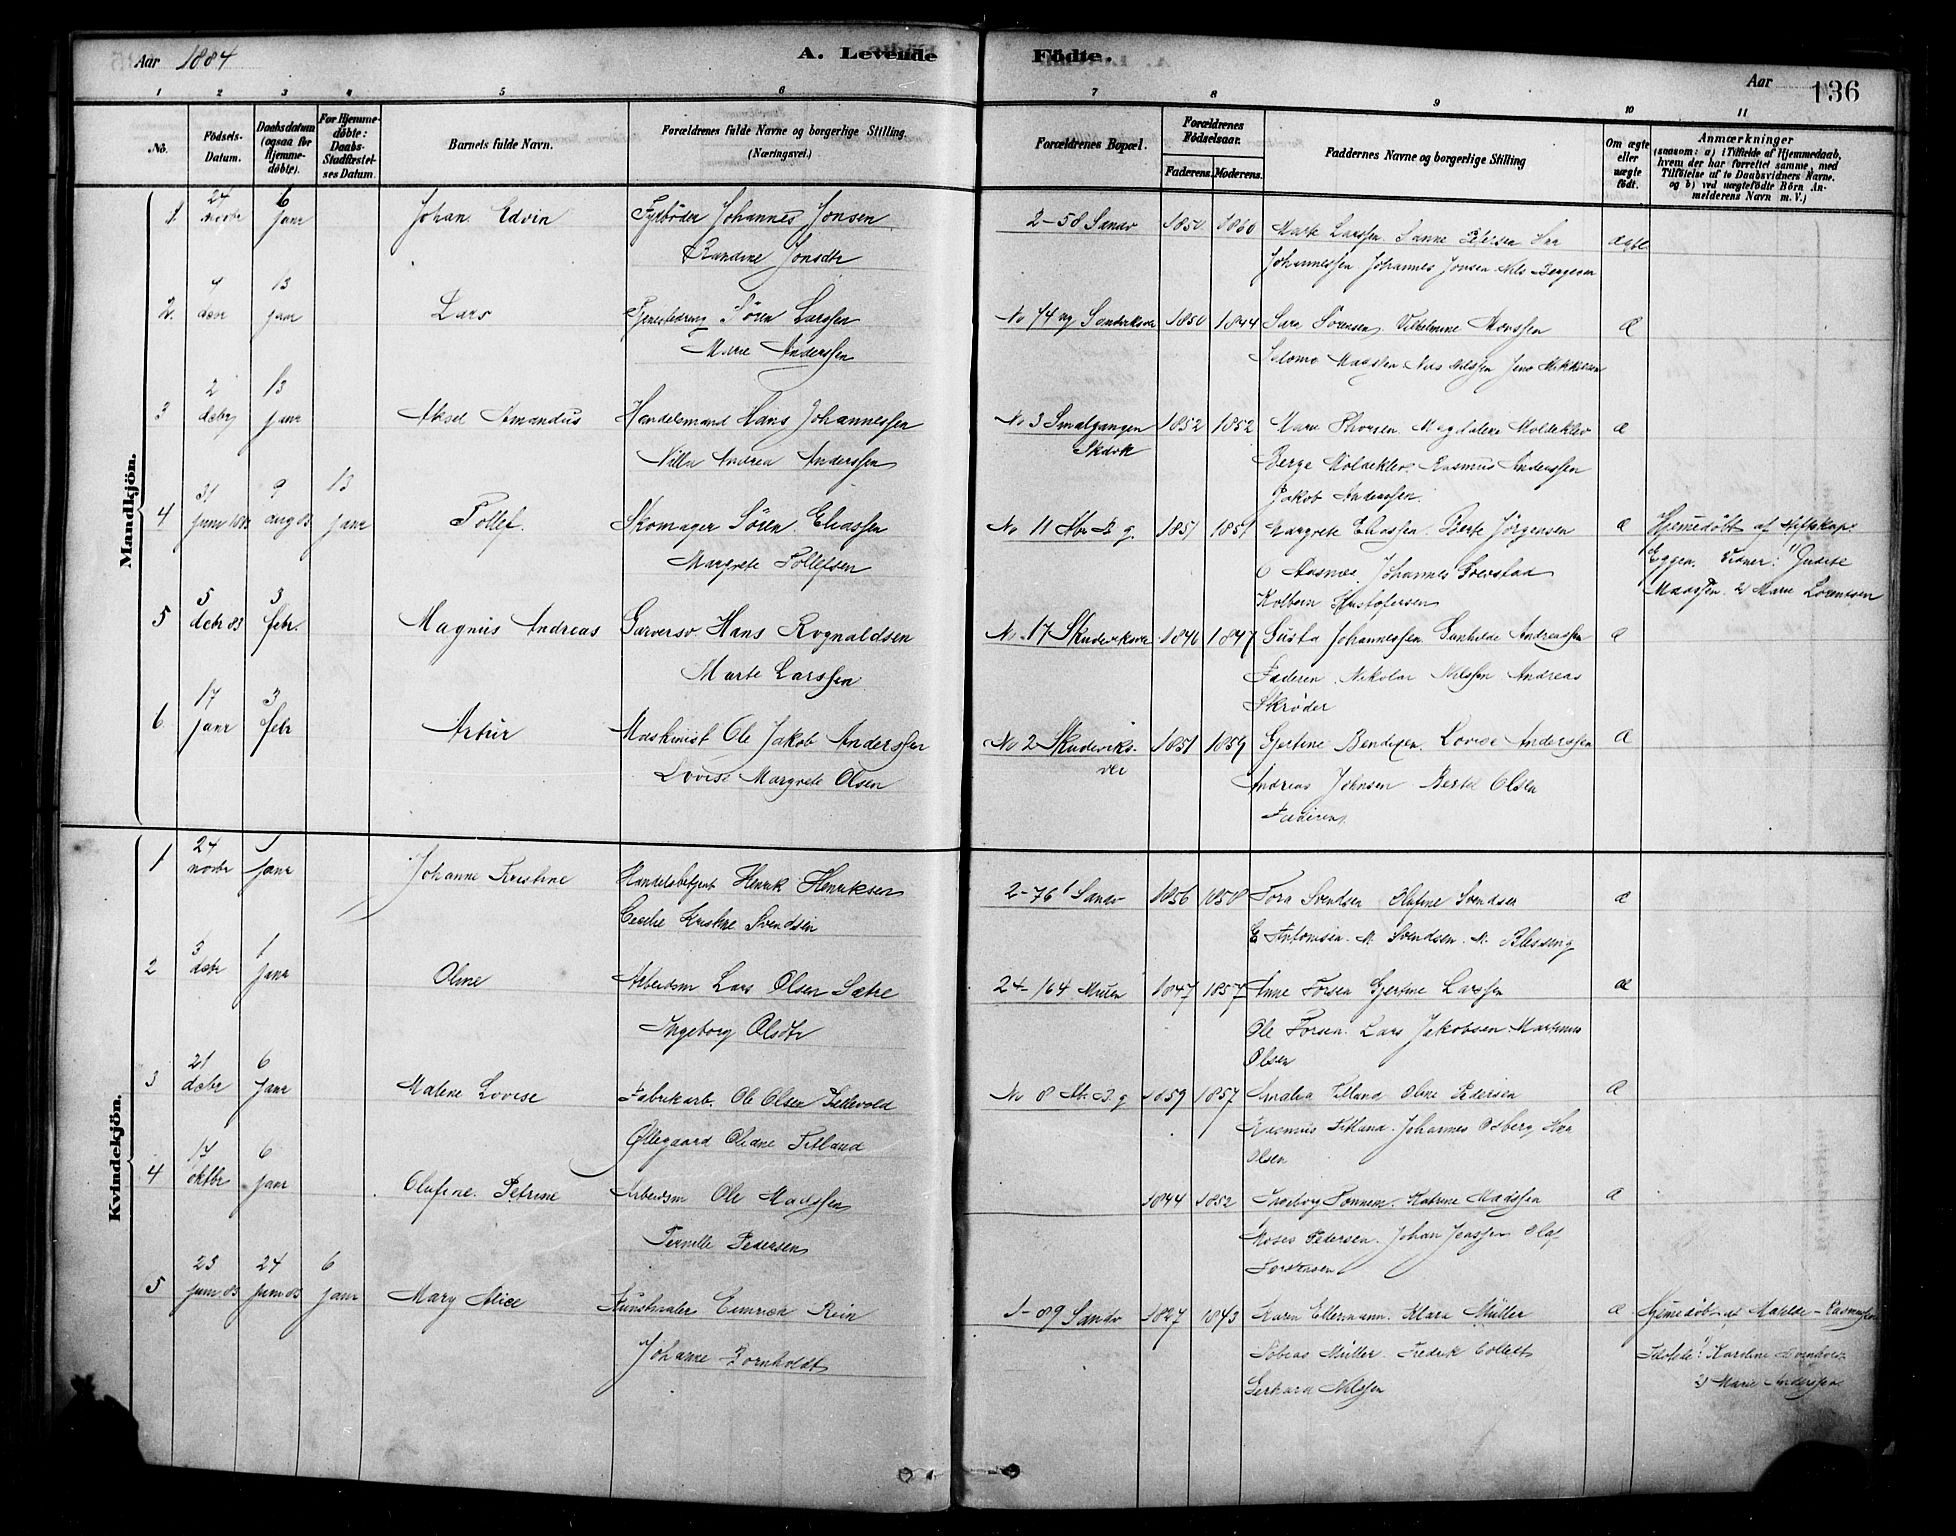 Aar 1884
A. Levende Födte.
Aar 136
1 2 3 4 5 6 7 8 9 10 11
No.
Födsels-Datum.
Daabsdatum (ogsaa for Hjemmedöbte).
For Hjemmedöbte: Daabs-Stadfæstelses Datum.
Barnets fulde Navn.
Forældrenes fulde Navne og borgerlige Stilling. (Næringsvei.)
Forældrenes Bopæl.
Forældrenes Födselsaar.
Faderens. Moderens.
Faddernes Navne og borgerlige Stilling
Om ægte eller uægte födt.
Anmærkninger
(saasom: a) i Tilfælde af Hjemmedaab, hvem der har forrettet samme, med Tilföielse af to Daabsvidners Navne, og b) ved uægtefödte Börn Anmelderens Navn m. V.)
Mandkjön.
1 24 novbr 6 janr Johan Edvin Johannes Jonsen
Randine Jonsdtr
2-58 Sandv 1850 1860 Marte Larssen Sanne Petersen
Johannessen Johannes Jonsen Nils Bergesen
ægte
2. 4 debr 13 janr Lars Sören Larssen
Marie Anderssen
No 74 1850 1844 Sara Sörensen Vilhelmine
Salomo Madssen Nils Nilssen Jens Mikkelsen
æ
3 2 debr 13 janr Aksel Amandus Handelsmand Hans Johannessen
Andrea Anderssen
No 3 Smalgangen 1852 1852 Marie Thorsen Magdalena Moldeklev æ
Berge Moldeklev Rasmus Anderssen
Jakob Anderssen
4 31 9 aug 83 13 janr Tollef. Skomager Sören Eliassen
Margrete Tollefsen
No 11 1851 1851 Margrete Eliassen Berte Jörgensen æ
O Aasnæs Johannes Svevstad
Kolbern Kristofersen
Hjemedöbt af
Eggen. Vidner: 1) Gurine
Madssen 2) Marie Lorentsen
5 5 debr 83 3 febr. Magnus Andreas Garversv. Hans Rognaldsen
Marte Larssen
No 17 Skudeviksvei 1846 1847 Gusta Johannessen Gunhilde Andreassen æ
Faderen Nikolai Nilssen Andreas
Skröder
6 17 janr 3 febr Artur Maskinist Ole Jakob Anderssen
Lovise Margrete Olsen
No 2 Skudeviks-vei 1851 1859 Gjertine Bendixen Lovise Anderssen æ
Andreas Johnsen Bertel Olsen
Faderen
Kvindekjön.
1 24 novbr 1 janr Johanne Kristine Handelsbetjent Henrik Henriksen
Cecilie Kristine Svendsen
2-76 Sandv 1856 1858 Tora Svendsen Olufine Svendsen æ
E Antonsen. M. Svendsen. M. Blessing
2 3 debr 1 janr Oline Arbeidsm Lars Olsen Sætre
Ingeborg Olsdtr
24-164 1847 1857 Anne Torsen Gjertine Larssen æ
Ole Torsen. Lars Jakobsen Martinus
Olsen
3 21 debr 6 janr Malene Lovise Fabrikarb. Ole Olsen
Öllegaard Oline Titland
No 8 1859 1857 Amalia Titland Oline Pedersen æ
Rasmus Titland. Johannes Osberg
Olsen
4 17 oktbr 6 janr Olufine Petrine Arbeidsm Ole Madssen
Pernille Pedersen
1844 1852 Ingeborg Tonnem. Katrine Madssen æ
Moses Pedersen. Johan Jenssen Olaf
Torstensen
5 23 juni 83 24 juni 83 6 janr Mary Alice Kunstmaler Rein
Johanne Bornholdt
1-89 Sandv 1827 1843 Karen Ellermann. Klara Müller æ
Tobias Müller. Fredrik Collett
Gerhard Nilssen
Hjemedöbt af Matilde Rasmussen
1) Karoline Bornholdt
2) Marie Anderssen